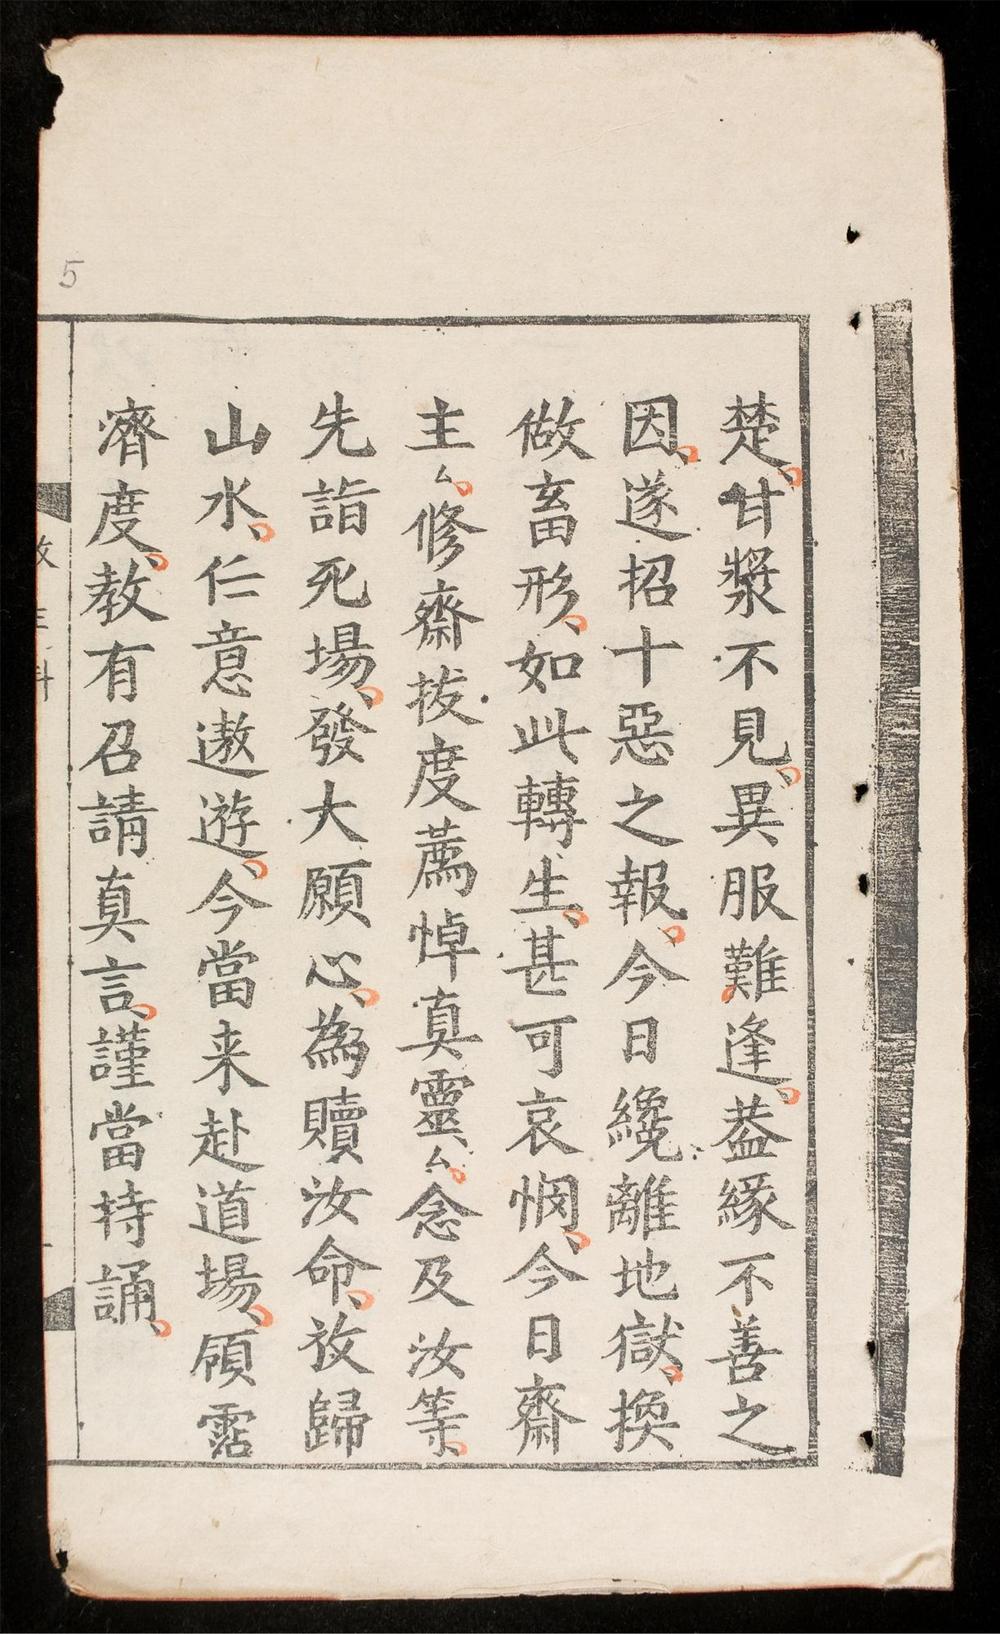 楚甘漿不見異服難逢葢緣不善之
因遂招十惡之報今日纔離地獄換
做畜形如此轉生甚可哀憫今日齋
主厶修齋拔度薦悼真靈厶念及汝等
先詣死場發大願心為贖汝命放歸
山水仁意遨遊今當来赴道場領霑
濟度教有召請真言謹當持誦
5